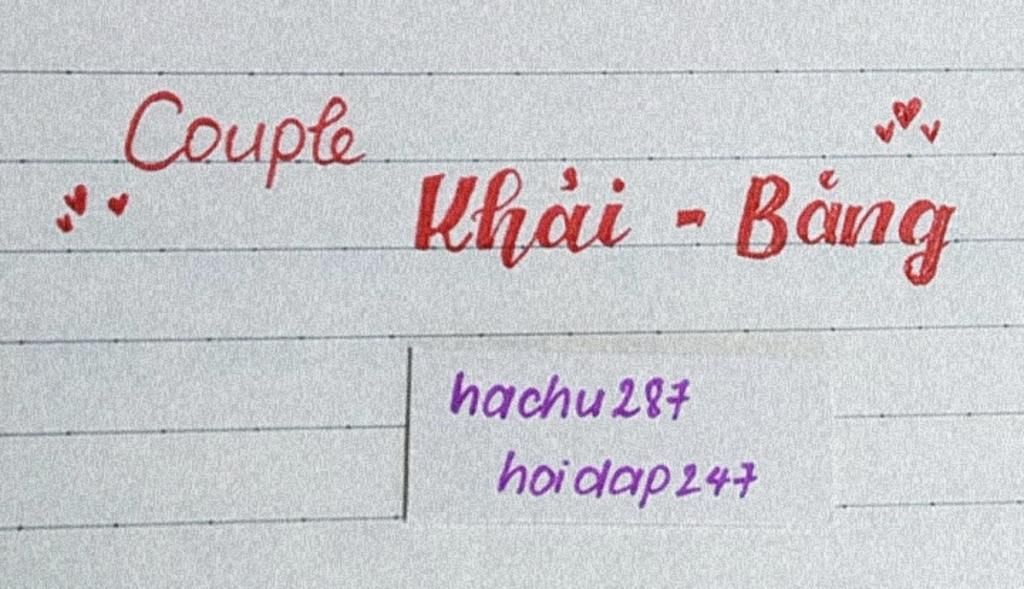 Couple
Khải - Bảng
hachu287
hoidap247